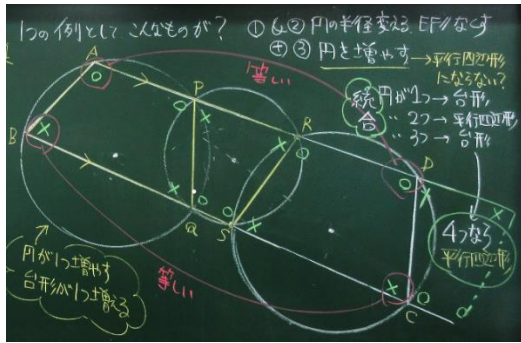 1つの例として こんなものが？
①&② 円の半径変える、EF//なくす
+③ 円を増やす→平行四辺形
にならない？
統合
円が1つ→台形
〃 2つ→平行四辺形
〃 3つ→台形
4つなら
平行四辺形
等しい
等しい
円が1つ増やす
台形が1つ増える
A
B
P
Q
R
S
D
C